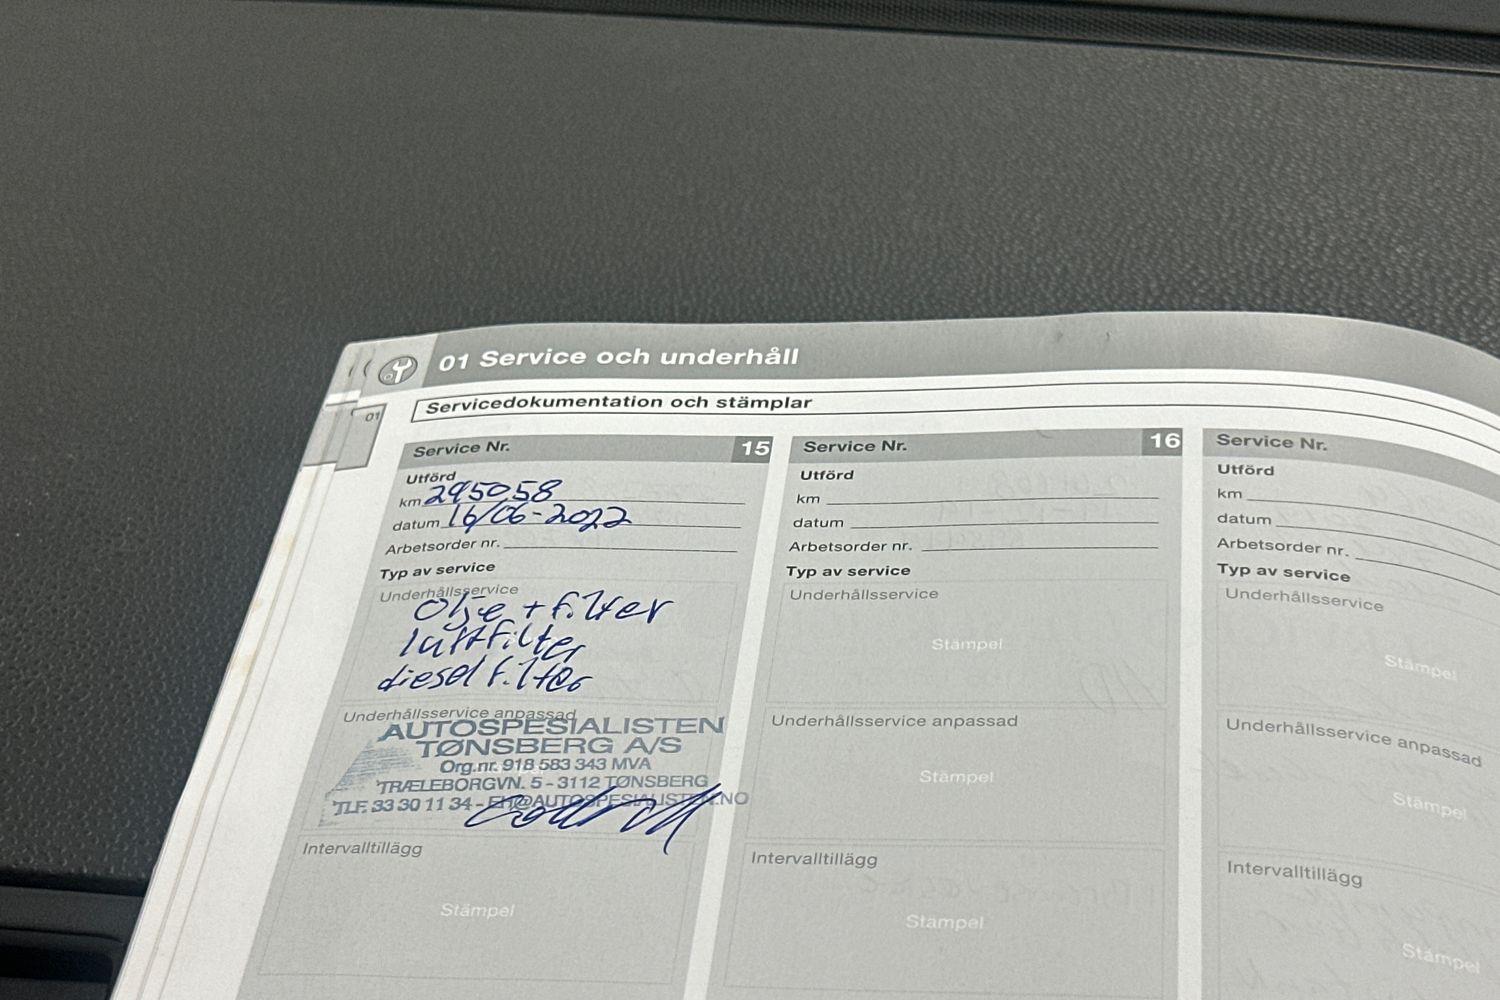 01 Service och underhåll
01
Servicedokumentation och stämplar
Service Nr. 15
Utförd
km 295058
datum 16/06-2022
Arbetsorder nr.
Typ av service
Underhållsservice
Olje + filter
luftfilter
diesel filter
Underhållsservice anpassad
AUTOSPESIALISTEN
TØNSBERG A/S
Org.nr. 918 583 343 MVA
TRÆLEBORGVN. 5 - 3112 TØNSBERG
TLF. 33 30 11 34 - EH@AUTOSPESIALISTEN.NO
Intervalltillägg
Stämpel
Service Nr. 16
Utförd
km
datum
Arbetsorder nr.
Typ av service
Underhållsservice
Stämpel
Underhållsservice anpassad
Stämpel
Intervalltillägg
Stämpel
Service Nr.
Utförd
km
datum
Arbetsorder nr.
Typ av service
Underhållsservice
Stämpel
Underhållsservice anpassad
Stämpel
Intervalltillägg
Stämpel